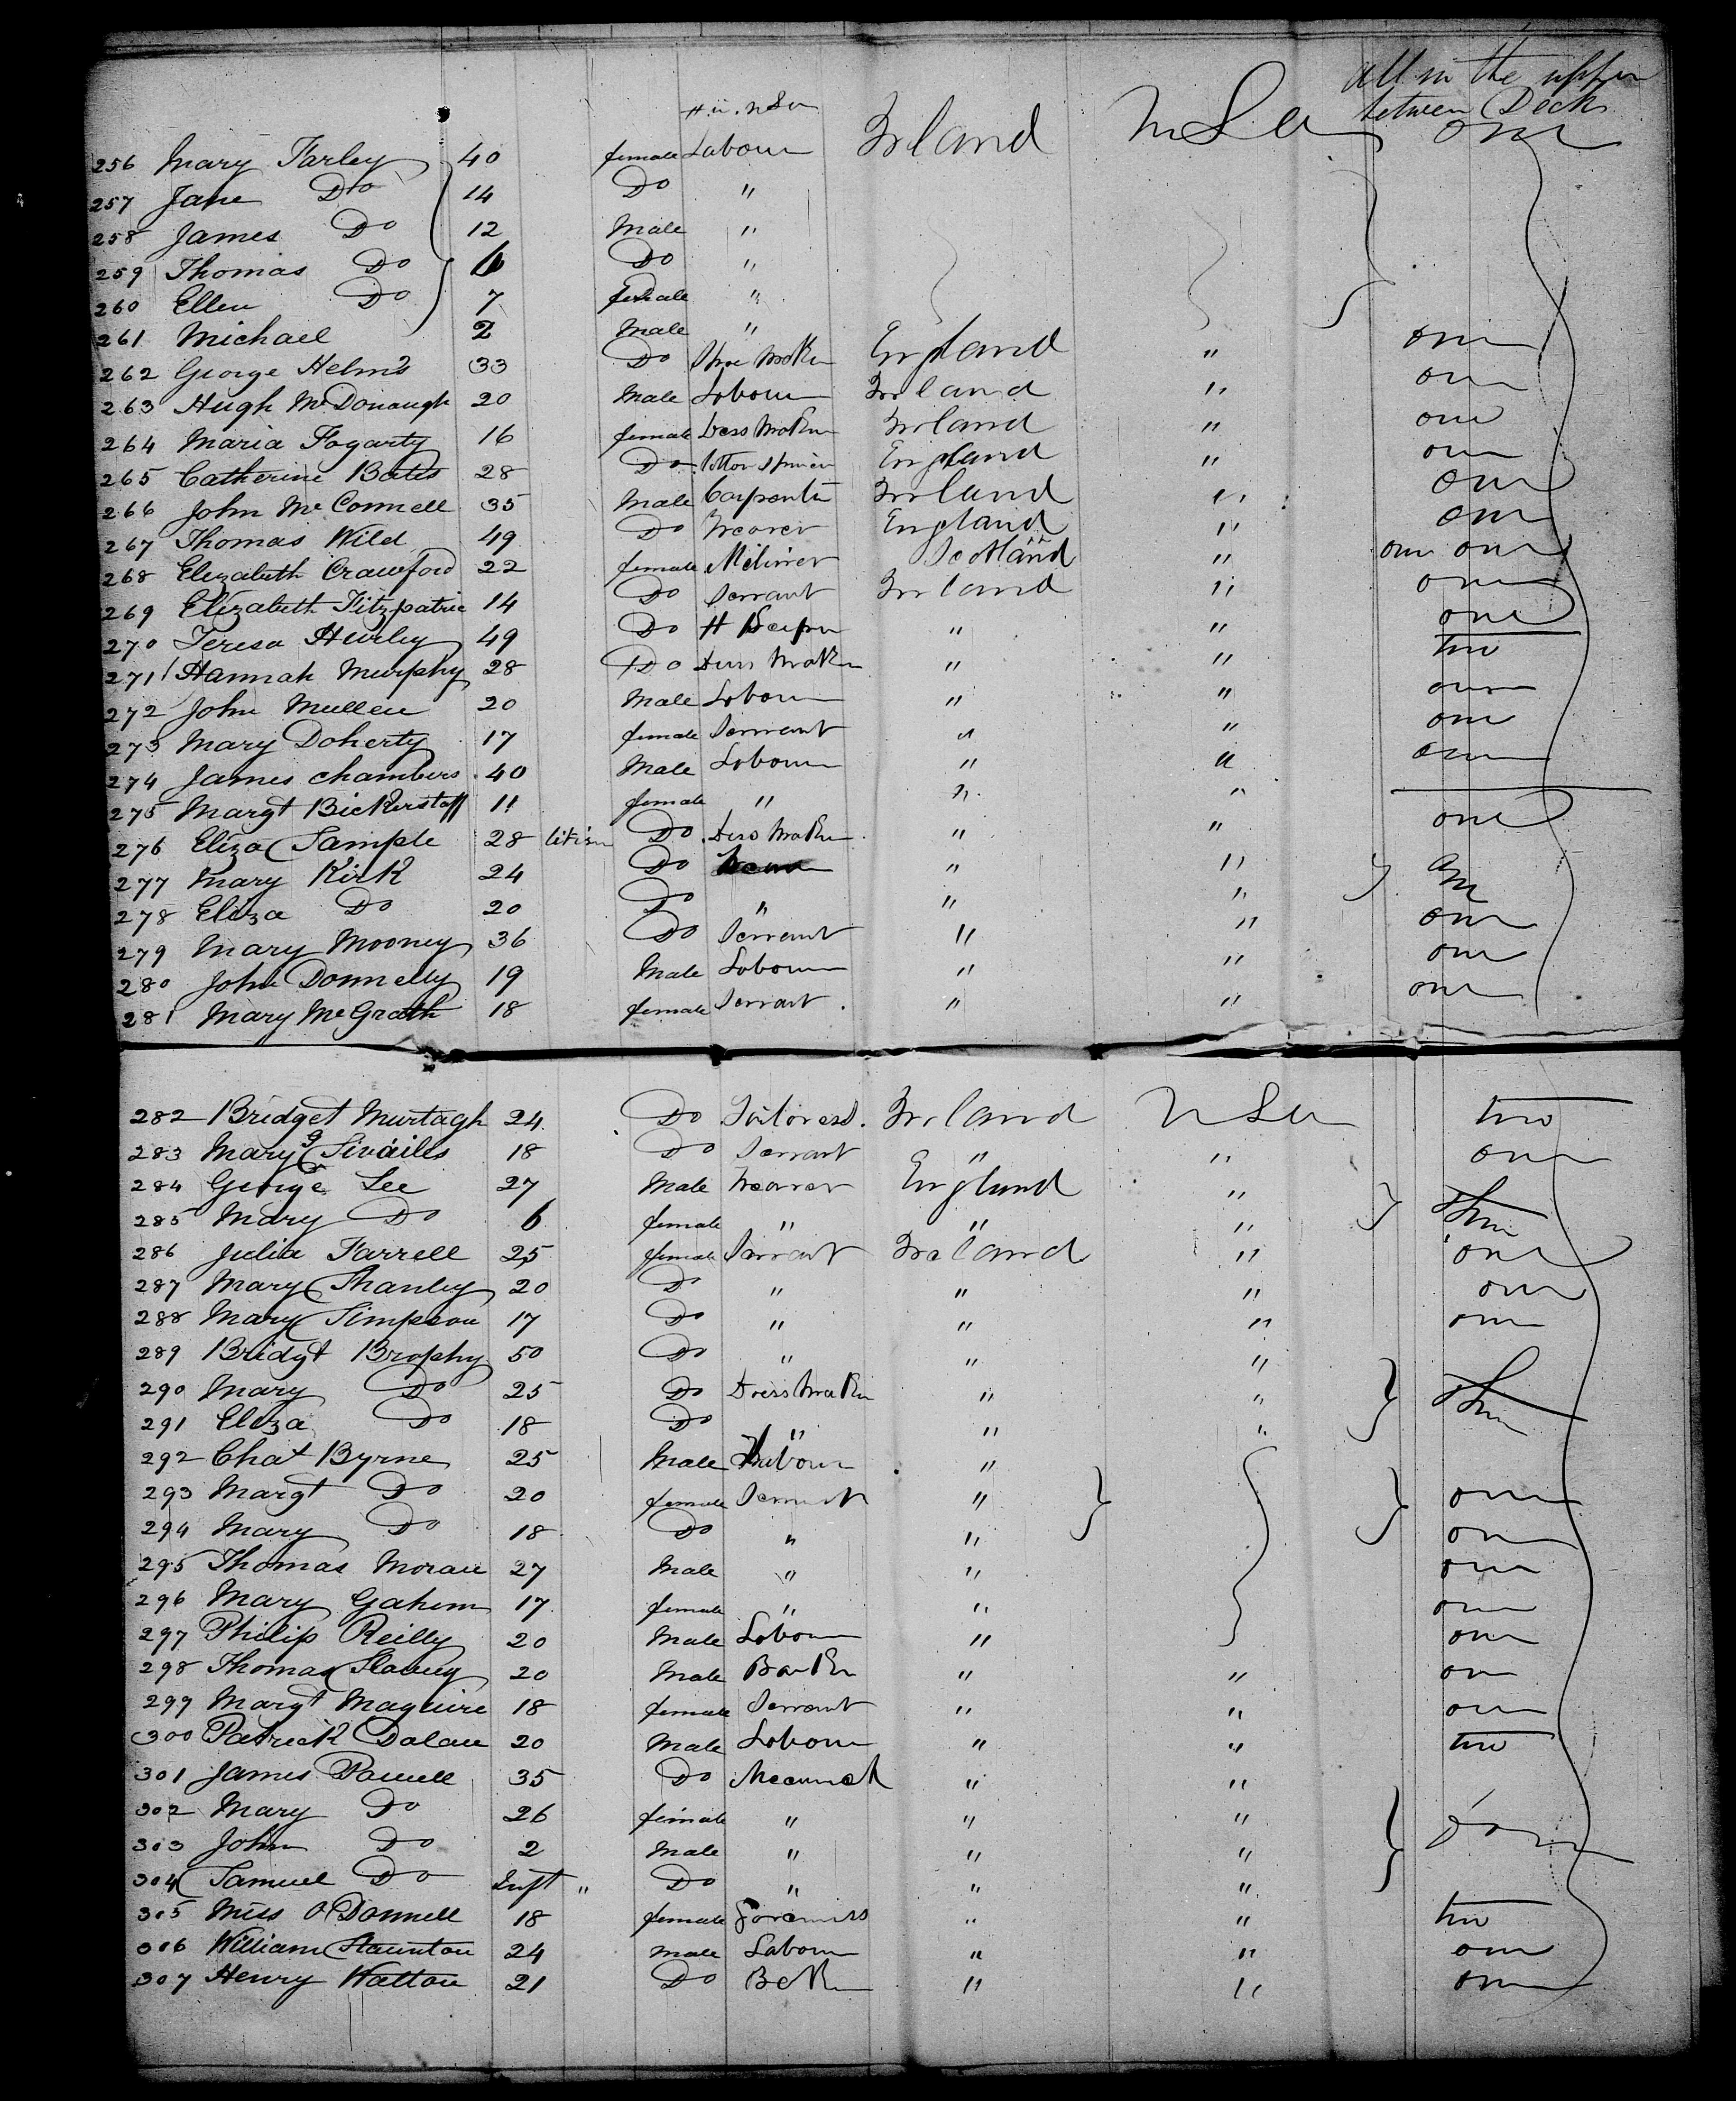 All in the upper
between Decks
256 Mary Farley 40 female Labour Irland USa one
257 Jane Do 14 Do "
258 James Do 12 Male "
259 Thomas Do Do "
260 Ellen Do 7 female "
261 Michael 2 Male "
262 George Helms 33 Do Shoe Maker England " one
263 Hugh McDonaugh 20 Male Labour Irland " one
264 Maria Fogarty 16 female Dess Maker Irland " one
265 Catherine Bates 28 Do England " one
266 John McConnell 35 Male Carpenter Irland " one
267 Thomas Wild 49 Do Weaver England " one
268 Elizabeth Crawford 22 female Miliner Scotland " one one
269 Elizabeth Fitzpatric 14 Do Servant Irland " one
270 Teresa Hurley 49 Do " " one
271 Hannah Murphy 28 Do Dress Maker " " two
272 John Mullen 20 Male Labour " " one
273 Mary Doherty 17 female Servant " " one
274 James Chambers 40 Male Labour " " one
275 Margt Bickerstaff 11 female " " "
276 Eliza Sample 28 Do Dess Maker " " one
277 Mary Kirk 24 Do " " one
278 Eliza Do 20 Do " " "
279 Mary Mooney 36 Do Servant " " one
280 John Donnelly 19 Male Labour " " one
281 Mary McGrath 18 female Servant " " one
282 Bridget Murtagh 24 Do Tailoress Irland USa two
283 Mary 18 Do Servant " " one
284 George Lee 27 Male Weaver England "
285 Mary Do 6 female " " " three
286 Julia Farrell 25 female Servant Ireland " one
287 Mary Shanley 20 Do " " " one
288 Mary Simpson 17 Do " " " one
289 Bridgt Brophy 50 Do " " "
290 Mary Do 25 Do Dress Maker " " three
291 Eliza Do 18 Do " " "
292 Chat Byrne 25 Male Labour "
293 Margt Do 20 female Servant " one
294 Mary Do 18 Do " " one
295 Thomas Moran 27 Male " " one
296 Mary Gahem 17 female " " one
297 Philip Reilly 20 Male Labour " one
298 Thomas Slavey 20 Male Baker " " one
299 Margt Maguire 18 female Servant " " one
300 Patrick Dolan 20 Male Labour " " two
301 James Powell 35 Do Mecanick " "
302 Mary Do 26 female " " " four
303 John Do 2 Male " " "
304 Samuel Do Inft " Do " " "
305 Miss O'Donnell 18 female Governiss " " two
306 William Staunton 24 male Labour " " one
307 Henry Watton 21 Do Beker " " one